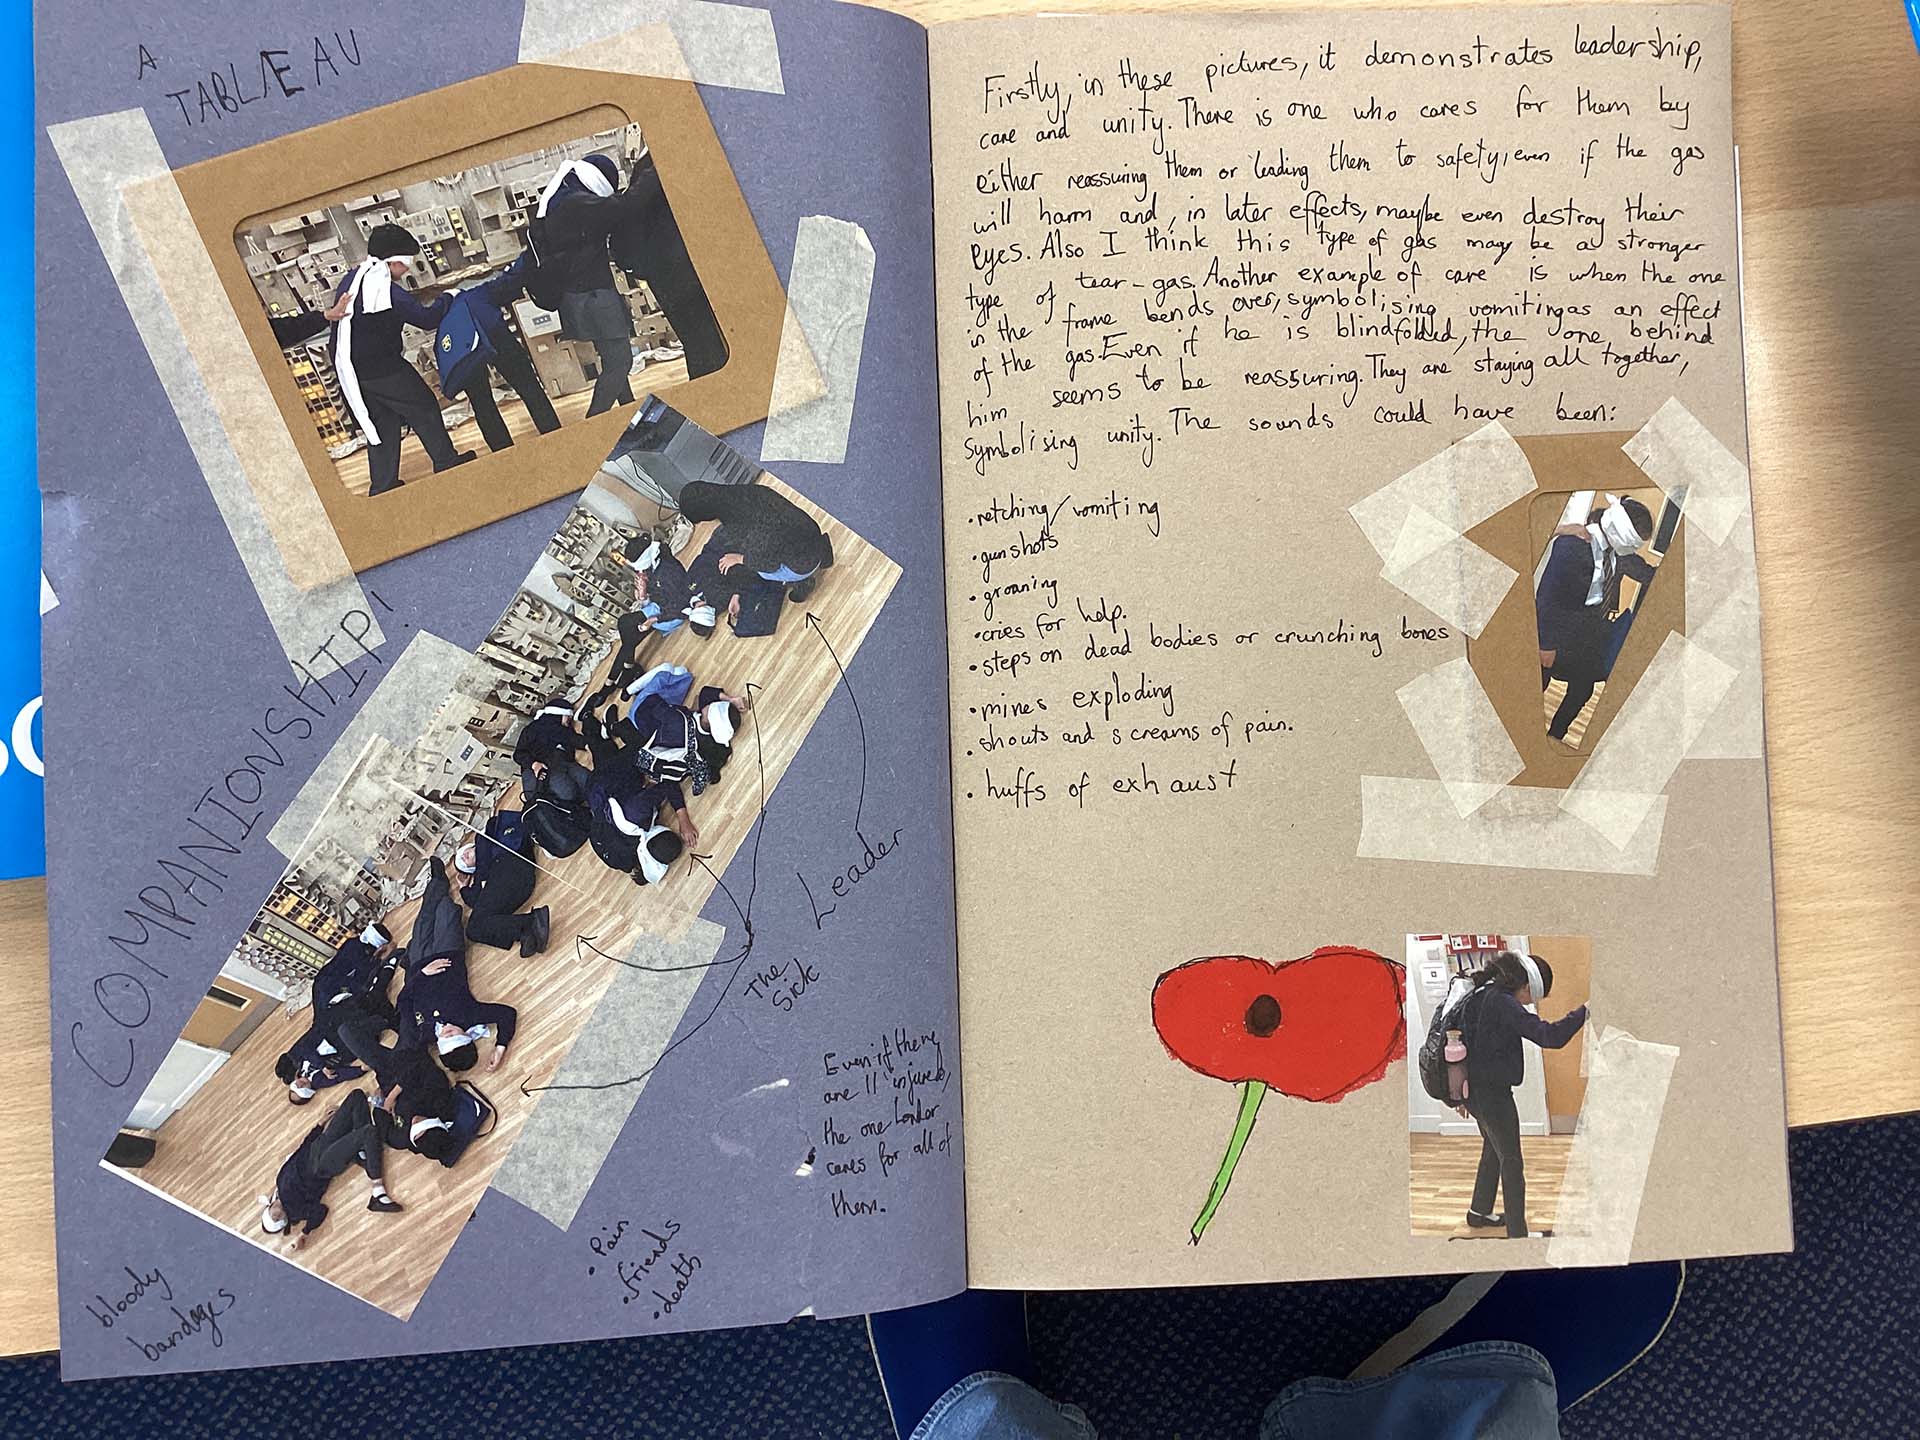 A
TABLEAU
COMPANIONSHIP!
Leader
The
Sick
Even if they
are injured,
the one leader
cares for all of
them.
• Pain
• friends
• death
bloody
bandages
Firstly, in these pictures, it demonstrates leadership,
care and unity. There is one who cares for them by
either reassuring them or leading them to safety, even if the gas
will harm and, in later effects, maybe even destroy their
eyes. Also I think this type of gas may be a stronger
type of tear-gas. Another example of care is when the one
in the frame bends over, symbolising vomiting as an effect
of the gas. Even if he is blindfolded, the one behind
him seems to be reassuring. They are staying all together,
Symbolising unity. The sounds could have been:
• retching/vomiting
• gunshots
• groaning
• cries for help.
• steps on dead bodies or crunching bones
• mines exploding
• shouts and screams of pain.
• huffs of exhaust